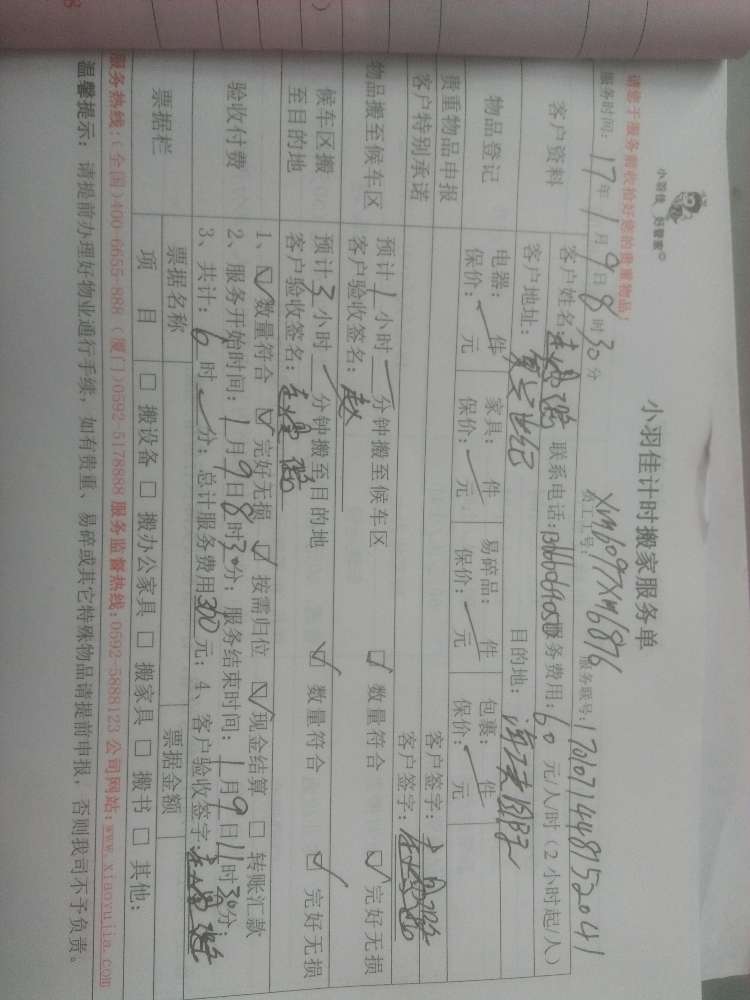 小羽佳 好管家
小羽佳计时搬家服务单
请您于服务前收拾好您的贵重物品!
员工工号: XM6097XM6876
服务时间: 17年1月9日8时30分
服务账号: 17010714481152041
客户资料
客户姓名: 联系电话: 服务费用: 60元/人/时(2小时起/人)
客户地址: 目的地:
物品登记
电器: 件 家具: 件 易碎品: 件 包裹: 件
保价: 元 保价: 元 保价: 元 保价: 元
贵重物品申报 客户签字:
客户特别承诺 客户签字:
物品搬至候车区
预计1小时 分钟搬至候车区 ☑ 数量符合 ☑ 完好无损
客户验收签名: 赵
候车区搬至目的地
预计3小时 分钟搬至目的地 ☑ 数量符合 ☑ 完好无损
客户验收签名:
验收付费
1、☑ 数量符合 ☑ 完好无损 ☑ 按需归位 ☑ 现金结算 □ 转账汇款
2、服务开始时间: 1月9日8时30分; 服务结束时间: 1月9日11时30分;
3、共计: 6时 分; 总计服务费用300元; 4、客户验收签字:
票据栏
票据名称 票据金额
项 目 □ 搬设备 □ 搬办公家具 □ 搬家具 □ 搬书 □ 其他:
服务热线:(全国)400-6655-888 (厦门)0592-5178888 服务监督热线:0592-5888123 公司网站:www.xiaoyujia.com
温馨提示: 请提前办理好物业通行手续, 如有贵重、易碎或其它特殊物品请提前申报, 否则我司不予负责。